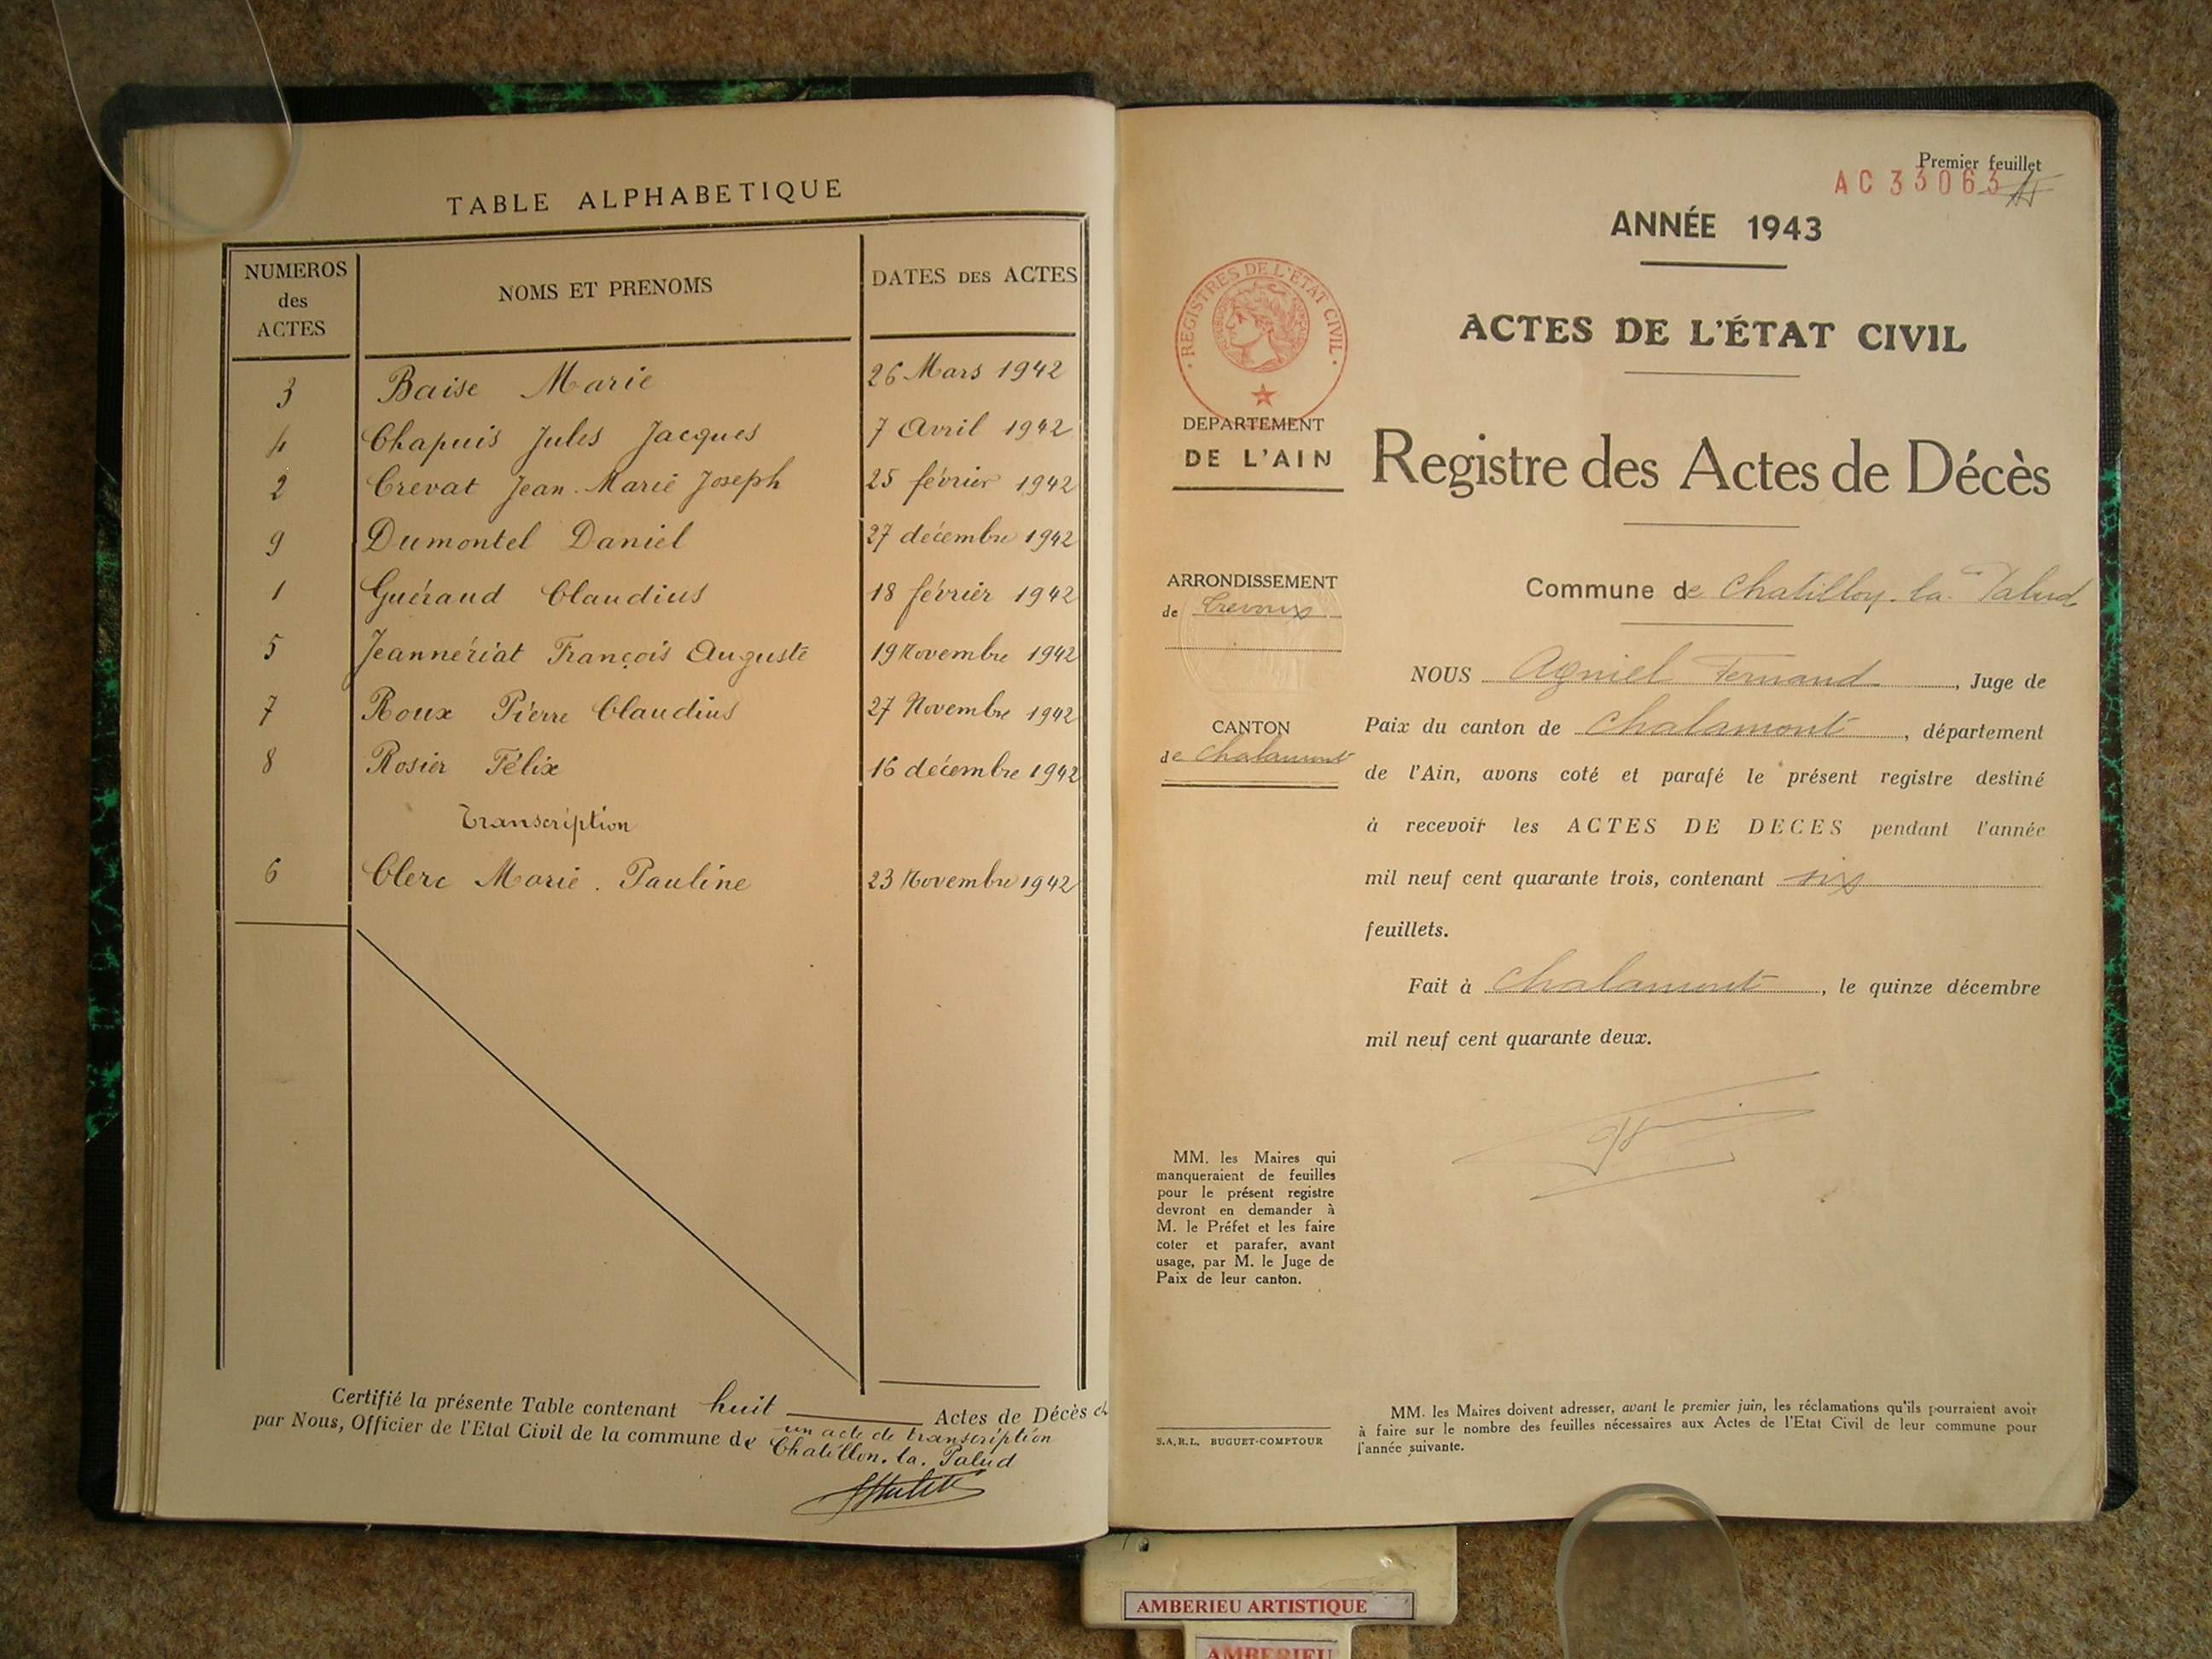 TABLE ALPHABETIQUE
NUMEROS des ACTES NOMS ET PRENOMS DATES DES ACTES
3 Baise Marie 26 Mars 1942
4 Chapuis Jules Jacques 7 Avril 1942
2 Crevat Jean-Marie Joseph 25 février 1942
9 Dumontel Daniel 27 décembre 1942
1 Guéraud Claudius 18 février 1942
5 Jeannériat François Auguste 19 Novembre 1942
7 Roux Pierre Claudius 27 Novembre 1942
8 Rosier Félix 16 décembre 1942
Transcription
6 Clerc Marie. Pauline 23 Novembre 1942
Certifié la présente Table contenant huit Actes de Décès et
un acte de transcription
par Nous, Officier de l'Etat Civil de la commune de Chatillon. la. Palud
Premier feuillet
AC 33063
ANNÉE 1943
ACTES DE L'ÉTAT CIVIL
Registre des Actes de Décès
REGISTRES DE L'ÉTAT CIVIL
DEPARTEMENT
DE L'AIN
ARRONDISSEMENT
de Trevoux
CANTON
de Chalamont
Commune de Chatillon-la-Palud
NOUS Agniel Fernand, Juge de
Paix du canton de Chalamont, département
de l'Ain, avons coté et parafé le présent registre destiné
à recevoir les ACTES DE DECES pendant l'année
mil neuf cent quarante trois, contenant six
feuillets.
Fait à Chalamont, le quinze décembre
mil neuf cent quarante deux.
MM. les Maires qui
manqueraient de feuilles
pour le présent registre
devront en demander à
M. le Préfet et les faire
coter et parafer, avant
usage, par M. le Juge de
Paix de leur canton.
S.A.R.L. BUGUET-COMPTOUR
MM. les Maires doivent adresser, avant le premier juin, les réclamations qu'ils pourraient avoir
à faire sur le nombre des feuilles nécessaires aux Actes de l'Etat Civil de leur commune pour
l'année suivante.
AMBERIEU ARTISTIQUE
AMBERIEU